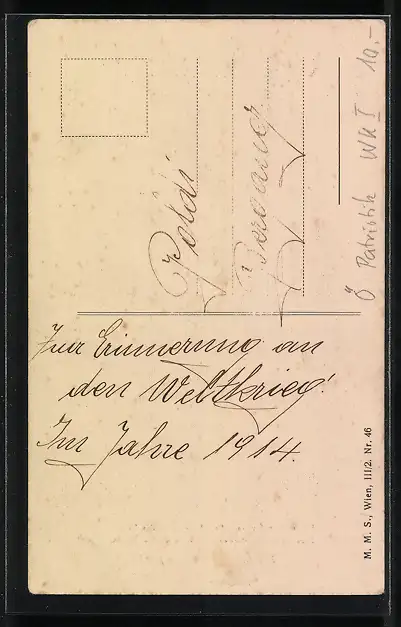 Zur Erinnerung an
den Weltkrieg!
Im Jahre 1914.
Poldi
Ö Patriotik WK I 10.-
M. M. S., Wien, III/2. Nr. 46